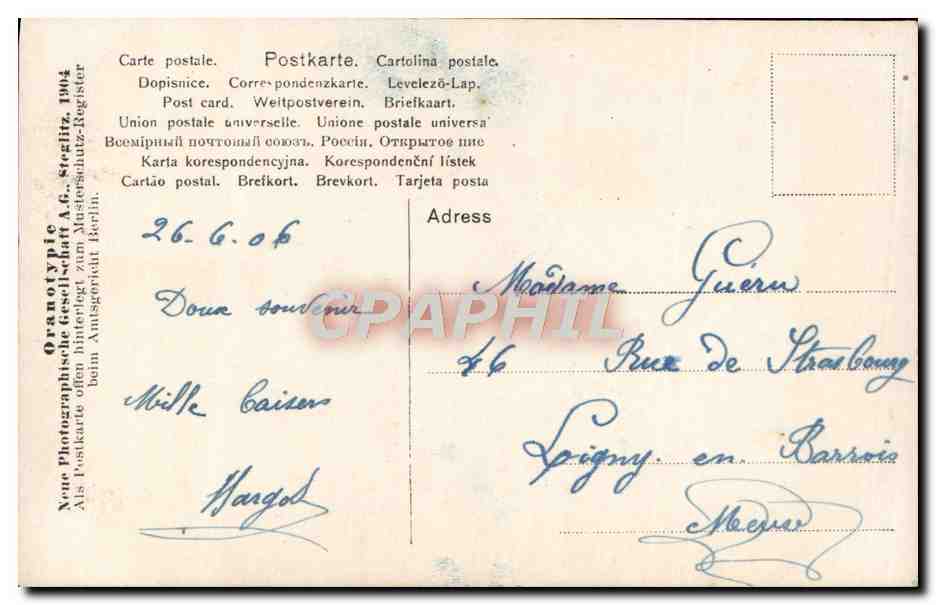 Carte postale. Postkarte. Cartolina postale.
Dopisnice. Correspondenzkarte. Levelező-Lap.
Post card. Weltpostverein. Briefkaart.
Union postale universelle. Unione postale universa
Всемірный почтовый союзъ. Россія. Открытое пис
Karta korespondencyjna. Korespondenční lístek
Cartão postal. Brefkort. Brevkort. Tarjeta posta
Oranotypie
Neue Photographische Gesellschaft A.G., Steglitz, 1904
Als Postkarte offen hinterlegt zum Musterschutz-Register
beim Amtsgericht Berlin.
26-6-06
Doux souvenir
Mille baisers
Margot
Adress
Madame Guérin
46 Rue de Strasbourg
Ligny en Barrois
Meuse
CPAPHIL